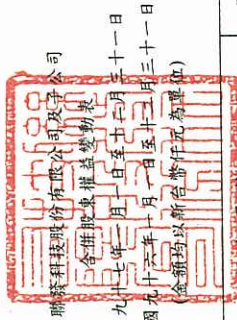 聯發科技股份有限公司及子公司
合併股東權益變動表
九十七年一月一日至十二月三十一日
國九十六年一月一日至十二月三十一日
(金額均以新台幣仟元為單位)